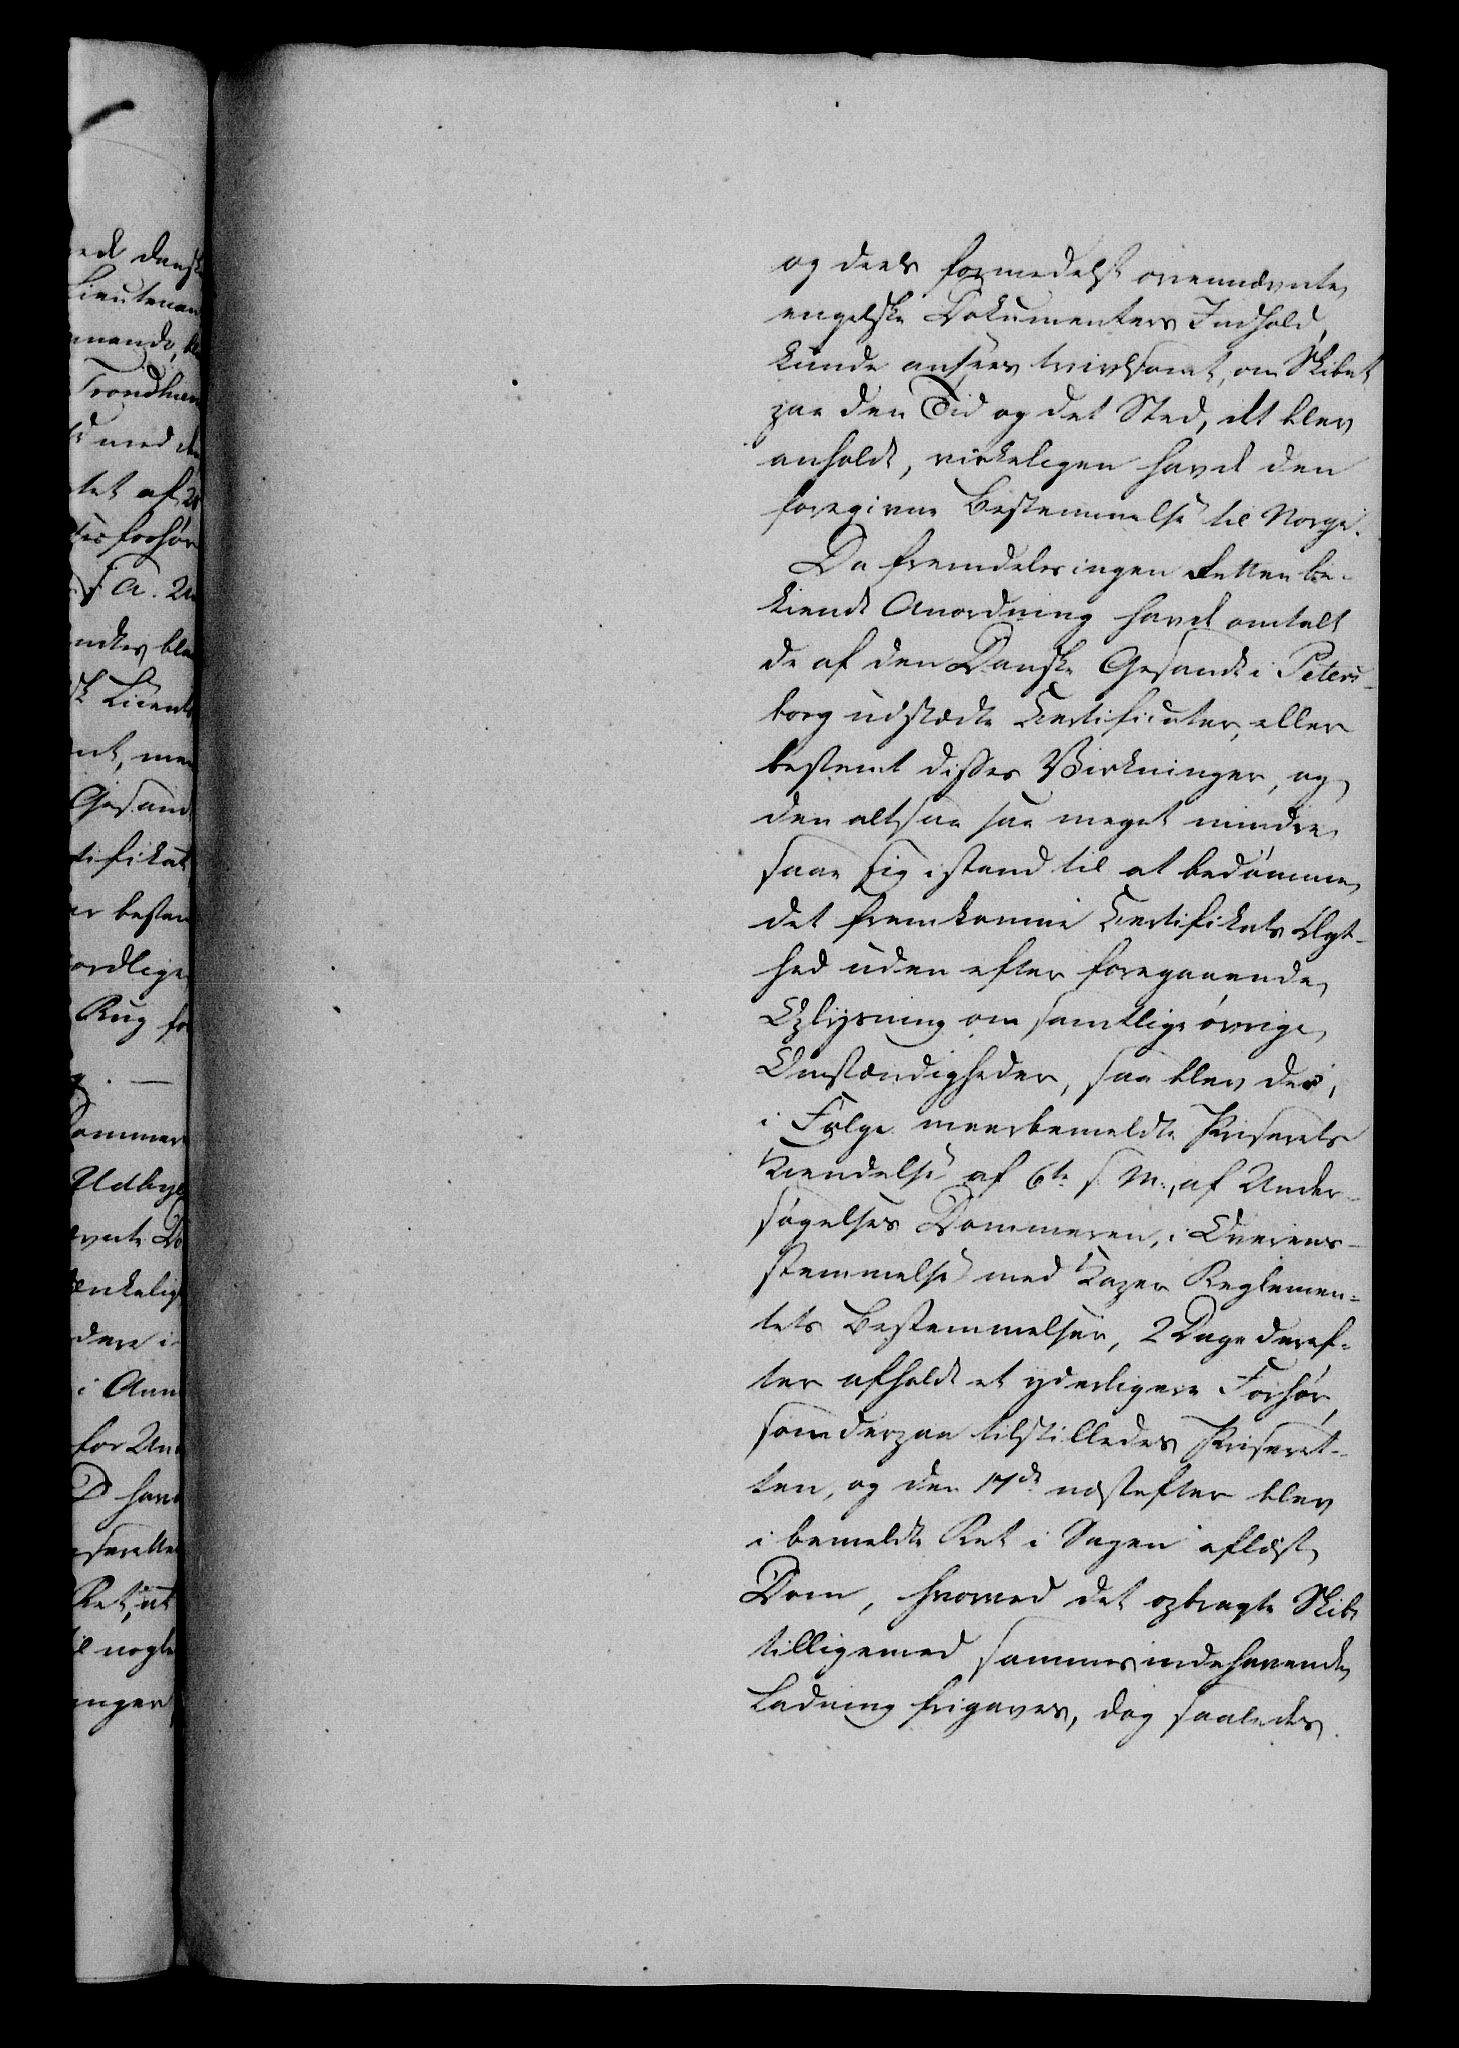 og deels formedelst ovennævnte
engelske Dokumenters Indhold,
kunde ansees tvivlsomt, om Skibet
paa den Tid og det Sted, dt blev
anholdt, virkeligen havde den
foregivne Bestemmelse til Norge.
Da fremdeles ingen Retten be-
kiendt Anordning havde omtalt
de af den Danske Gesandt i Peters-
borg udstædte Certificater, eller
bestemt disses Virkninger, og
den altsaa saa meget mindre
saae sig istand til at bedømme
det fremkomne Certifikats Ægt-
hed uden efter foregaaende
Oplysning om samtlige øvrige
Omstændigheder, saa blev der,
i Følge meerbemeldte Priserets
Kiendelse af 6te s. M., af Under-
søgelses Dommeren, i Overens-
stemmelse med Kaper Reglemen-
tets Bestemmelser, 2 Dage deref-
ter afholdt et yderligere Forhør,
som derpaa tilstilledes Priseret-
ten, og den 17de næstefter blev
i bemeldte Ret i Sagen aflæst
Dom, hvorved det opbragte Skib
tilligemed sammes indehavende
Ladning frigaves, dog saaledes